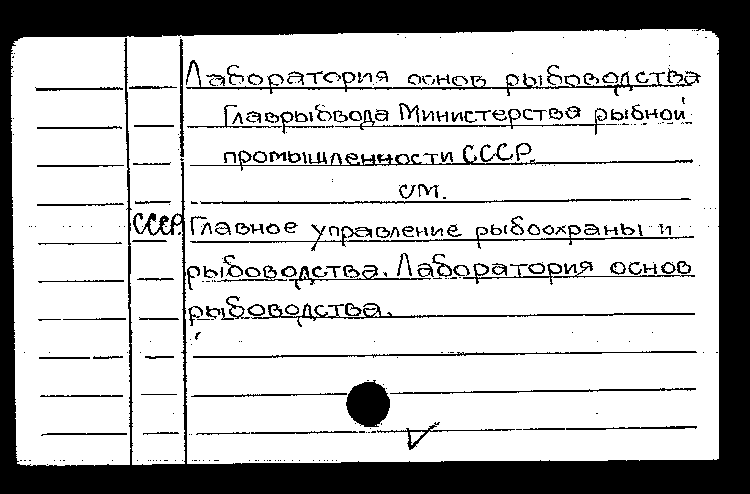 Лаборатория основ рыбоводства
Главрыбвода Министерства рыбной
промышленности СССР.
см.
СССР. Главное управление рыбоохраны и
рыбоводства. Лаборатория основ
рыбоводства.